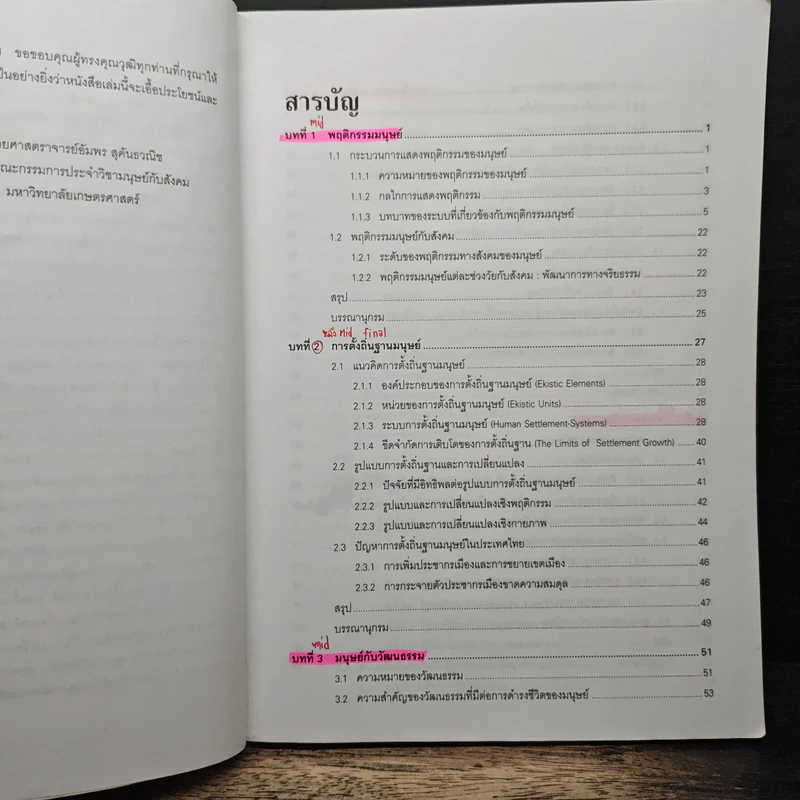 ขอขอบคุณผู้ทรงคุณวุฒิทุกท่านที่กรุณาให้
ป็นอย่างยิ่งว่าหนังสือเล่มนี้จะเอื้อประโยชน์และ
ยศาสตราจารย์อัมพร สุคันธวณิช
ณะกรรมการประจำวิชามนุษย์กับสังคม
มหาวิทยาลัยเกษตรศาสตร์
สารบัญ
mid
บทที่ 1 พฤติกรรมมนุษย์ 1
1.1 กระบวนการแสดงพฤติกรรมของมนุษย์ 1
1.1.1 ความหมายของพฤติกรรมของมนุษย์ 1
1.1.2 กลไกการแสดงพฤติกรรม 3
1.1.3 บทบาทของระบบที่เกี่ยวข้องกับพฤติกรรมมนุษย์ 5
1.2 พฤติกรรมมนุษย์กับสังคม 22
1.2.1 ระดับของพฤติกรรมทางสังคมของมนุษย์ 22
1.2.2 พฤติกรรมมนุษย์แต่ละช่วงวัยกับสังคม : พัฒนาการทางจริยธรรม 22
สรุป 23
บรรณานุกรม 25
หลัง mid final
บทที่ 2 การตั้งถิ่นฐานมนุษย์ 27
2.1 แนวคิดการตั้งถิ่นฐานมนุษย์ 28
2.1.1 องค์ประกอบของการตั้งถิ่นฐานมนุษย์ (Ekistic Elements) 28
2.1.2 หน่วยของการตั้งถิ่นฐานมนุษย์ (Ekistic Units) 28
2.1.3 ระบบการตั้งถิ่นฐานมนุษย์ (Human Settlement-Systems) 28
2.1.4 ขีดจำกัดการเติบโตของการตั้งถิ่นฐาน (The Limits of Settlement Growth) 40
2.2 รูปแบบการตั้งถิ่นฐานและการเปลี่ยนแปลง 41
2.2.1 ปัจจัยที่มีอิทธิพลต่อรูปแบบการตั้งถิ่นฐานมนุษย์ 41
2.2.2 รูปแบบและการเปลี่ยนแปลงเชิงพฤติกรรม 42
2.2.3 รูปแบบและการเปลี่ยนแปลงเชิงกายภาพ 44
2.3 ปัญหาการตั้งถิ่นฐานมนุษย์ในประเทศไทย 46
2.3.1 การเพิ่มประชากรเมืองและการขยายเขตเมือง 46
2.3.2 การกระจายตัวประชากรเมืองขาดความสมดุล 46
สรุป 47
บรรณานุกรม 49
mid
บทที่ 3 มนุษย์กับวัฒนธรรม 51
3.1 ความหมายของวัฒนธรรม 51
3.2 ความสำคัญของวัฒนธรรมที่มีต่อการดำรงชีวิตของมนุษย์ 53